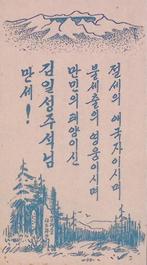 절세의 애국자이시며
불세출의 영웅이시며
만민의 태양이신
김일성주석님
만세!